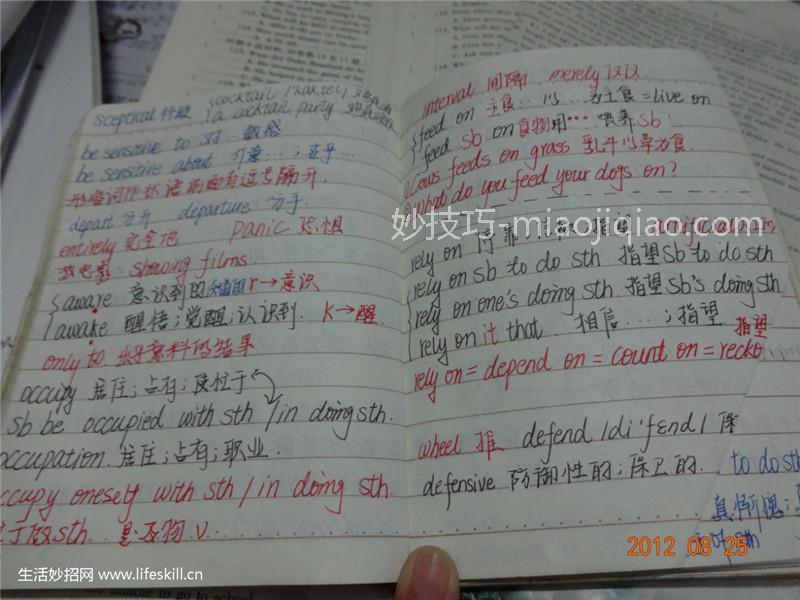 sceptical 怀疑
cocktail /'kɔktel/
a cocktail party
be sensitive to 对…敏感
be sensitive about 介意…;在乎…
形容词作状语前面有逗号隔开.
depart 分开 departure 分手
entirely 完全地 panic 恐惧
放电影 showing films
aware 意识到的 r→意识
awake 醒悟;觉醒;认识到. k→醒.
only to 出乎意料的结果
occupy 居住;占有;使忙于
sb be occupied with sth /in doing sth.
occupation. 居住;占有;职业.
occupy oneself with sth / in doing sth.
忙于做sth. 是及物 v
interval 间隔 merely 仅仅
feed on 主食… 以…为主食=live on
feed sb on 食物用… 喂养sb
①Cows feeds on grass 乳牛以草为食.
②What do you feed your dogs on?
rely on 指望
rely on sb to do sth 指望sb to do sth
rely on one's doing sth. 指望sb's doing sth
rely on it that 相信…;指望
指望
rely on = depend on = count on = recko
wheel 推 defend /di'fɛnd/ 保
defensive 防御性的;保卫的.
to do sth
真惭愧;
of sth
2012 08 25
妙技巧-miaojiqiao.com
生活妙招网 www.lifeskill.cn